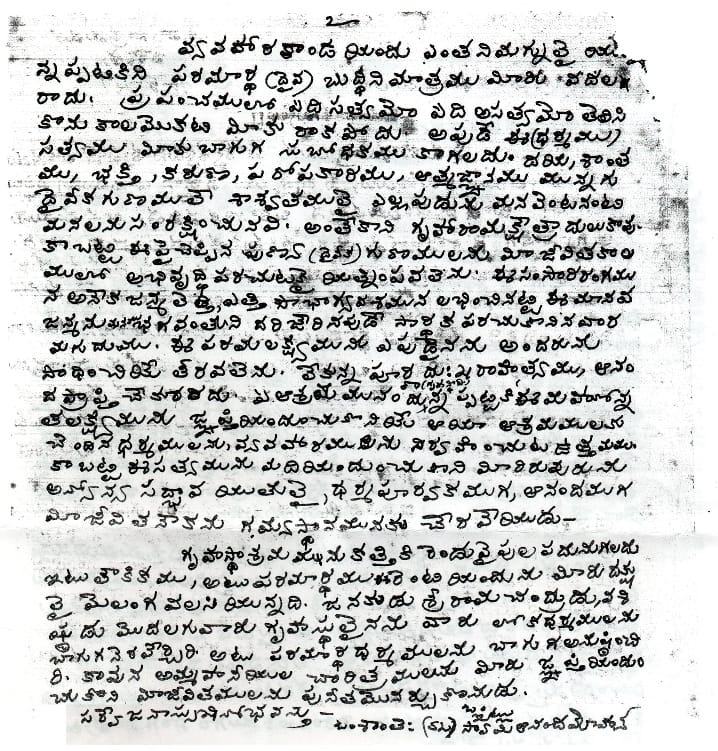 2
వ్యవహారకాండ యందు ఎంత నిమగ్నులై యు
న్నప్పటికిని పరమార్థ (దైవ) బుద్ధిని మాత్రము మీరు వదల
రాదు. ప్రపంచములో ఏది సత్యమో ఏది అసత్యమో తెలిసి
కొను కాలమొకటి మీకు రాకపోదు అపుడే ఈ (ధర్మము)
సత్యము మీకు బాగుగ సుబోధకము కాగలదు. దయ, శాంత
ము, భక్తి, కరుణ, పరోపకారము, ఆత్మజ్ఞానము మున్నగు
దైవికగుణములే శాశ్వతములై ఎల్లపుడును మన వెంటనంటి
మనలను సంరక్షించునవి. అంతేకాని గృహారామక్షేత్రాదులు కావు.
కాబట్టి ఈ పైచెప్పిన (దైవిక) గుణములను మీ జీవితకాల
ములో అభివృద్ధి పరచుటకై యత్నింపవలెను. ఈ సంసారరంగము
న అనేక జన్మలెత్తి, ఎత్తి సౌభాగ్యవశమున లభించినట్టి ఈ మానవ
జన్మను భగవంతుని దరిజేరినపుడే సార్థక పరచుకొనినవార
మగుదుము. ఈ పరమలక్ష్యమును ఎపుడైనను అందరును
సాధించియే తీరవలెను. లేకున్న పూర్ణ దుఃఖరాహిత్యము, ఆనం
ద ప్రాప్తి చేకూరదు. ఏ ఆశ్రమమునందున్నప్పటికి ఈ మహోన్న
తలక్ష్యమును జ్ఞప్తియందుంచుకొనియే ఆయా ఆశ్రమములకు
చెందిన ధర్మములను, వ్యవహారములను నిర్వహించుట ఉత్తమము.
కాబట్టి ఈ సత్యమును మదియందుంచుకొని మీరిరువురును
అన్యోన్య సద్భావ యుతులై, ధర్మపూర్వకముగ, ఆనందముగ
మీ జీవిత నౌకను గమ్యస్థానమునకు చేరవేయుడు–
గృహస్థాశ్రమమ్మును కత్తికి రెండువైపుల పదునుగలదు
ఇటు లౌకికము, అటు పరమార్థము ఈ రెంటియందును మీరు దక్షు
లై మెలంగవలసియున్నది. జనకుడు శ్రీరామచంద్రుడు, వశి
ష్ఠుడు మొదలగువారు గృహస్థులైనను వారు లోకధర్మములను
బాగుగ నెరవేర్చిరి. అటు పరమార్థధర్మములను బాగుగ అనుష్ఠించి
రి. కావున అమ్మహనీయుల చారిత్రములను మీరు జ్ఞప్తియందుం
చుకొని మీ జీవితములను పునీతమొనర్చుకొనుడు.
సర్వేజనాస్సుఖినోభవన్తు –
ఓం శాంతిః (సం) స్వామి ఆనందమోహన్